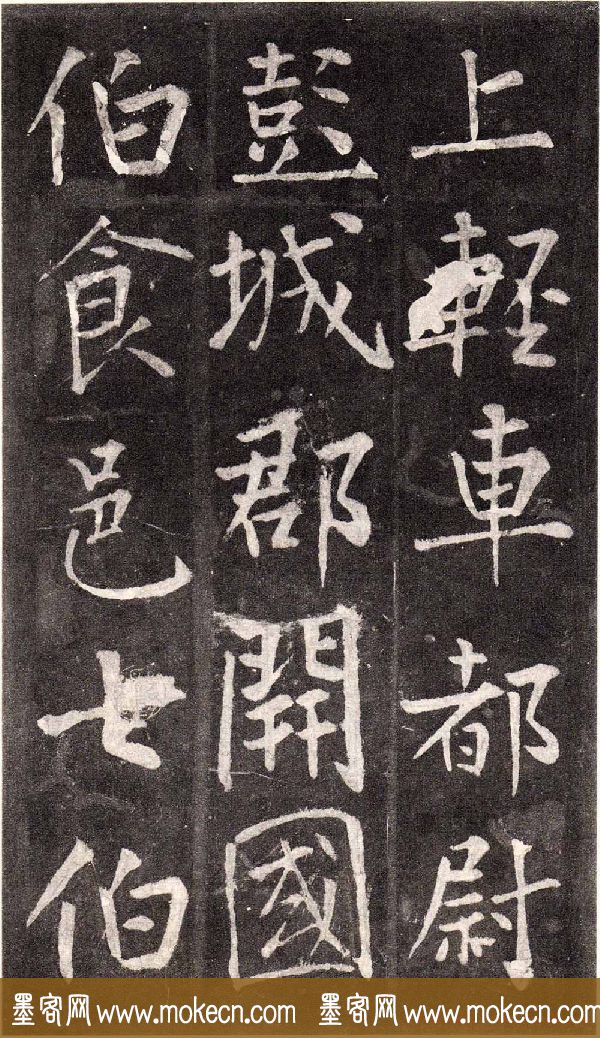 上輕車都尉
彭城郡開國
伯食邑七伯
墨客网 www.mokecn.com 墨客网 www.mokecn.com